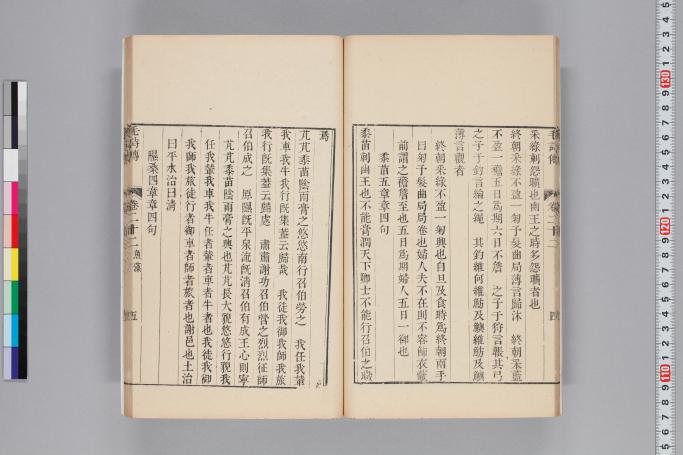 毛詩傳
卷二十二
四
采綠刺怨曠也幽王之時多怨曠者也
終朝采綠不盈一匊予髮曲局薄言歸沐　終朝采藍
不盈一襜五日爲期六日不詹　之子于狩言韔其弓
之子于釣言綸之繩　其釣維何維魴及鱮維魴及鱮
薄言觀者
終朝采綠不盈一匊興也自旦及食時爲終朝兩手
曰匊予髮曲局局卷也婦人夫不在則不容飾衣蔽
前謂之襜詹至也五日爲期婦人五日一御也
黍苗五章章四句
黍苗刺幽王也不能膏潤天下卿士不能行召伯之職
焉
芃芃黍苗陰雨膏之悠悠南行召伯勞之　我任我輦
我車我牛我行旣集葢云歸哉　我徒我御我師我旅
我行旣集葢云歸處　肅肅謝功召伯營之烈烈征師
召伯成之　原隰旣平泉流旣清召伯有成王心則寧
芃芃黍苗陰雨膏之興也芃芃長大貌悠悠行貌我
任我輦我車我牛任者輦者車者牛者也我徒我御
我師我旅徒行者御車者師者旅者也謝邑也土治
曰平水治曰清
隰桑四章章四句
毛詩傳
卷二十二　魚藻
五